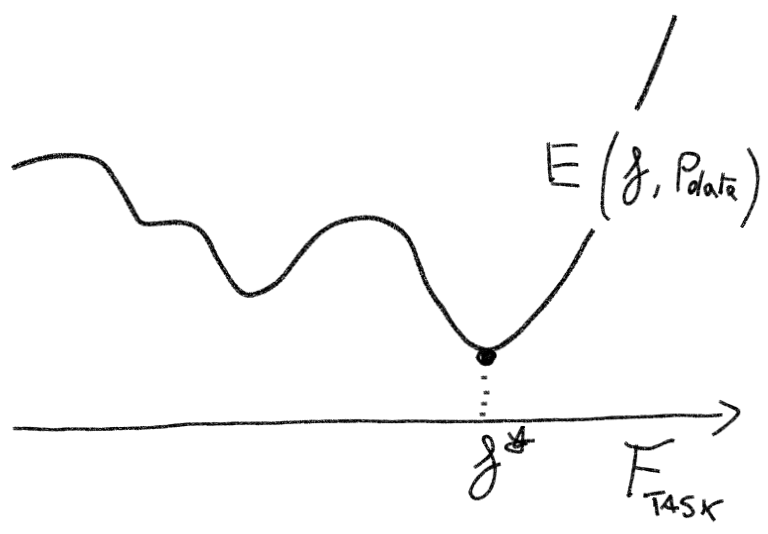 E (f, Pdata)
f*
F TASK